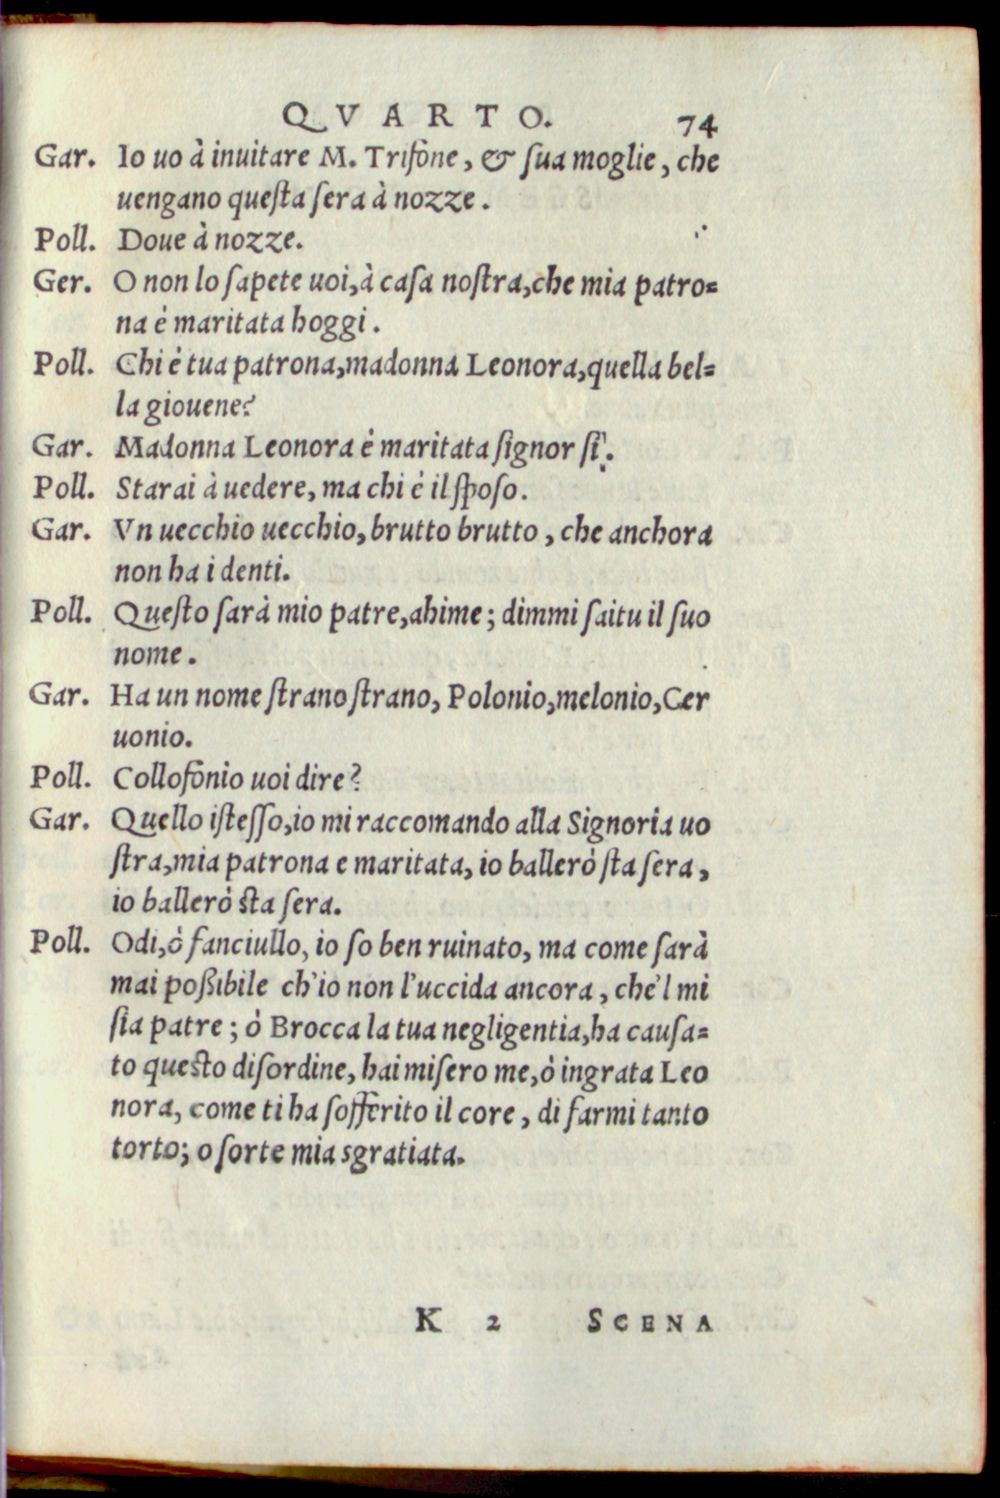 QVARTO. 74
Gar. Io uo à inuitare M. Trifone, & ſua moglie, che
uengano queſta ſera à nozze.
Poll. Doue à nozze.
Ger. O non lo ſapete uoi, à caſa noſtra, che mia patro-
na è maritata hoggi.
Poll. Chi è tua patrona, madonna Leonora, quella bel-
la giouene?
Gar. Madonna Leonora è maritata ſignor ſi.
Poll. Starai à uedere, ma chi è il ſpoſo.
Gar. Vn uecchio uecchio, brutto brutto, che anchora
non ha i denti.
Poll. Queſto ſarà mio patre, ahime; dimmi ſaitu il ſuo
nome.
Gar. Ha un nome ſtrano ſtrano, Polonio, melonio, Cer
uonio.
Poll. Collofonio uoi dire?
Gar. Quello iſteſſo, io mi raccomando alla Signoria uo
ſtra, mia patrona e maritata, io ballerò ſta ſera,
io ballerò ſta ſera.
Poll. Odi, ò fanciullo, io ſo ben ruinato, ma come ſarà
mai poßibile ch'io non l'uccida ancora, che'l mi
ſia patre; ò Brocca la tua negligentia, ha cauſa-
to queſto diſordine, hai miſero me, ò ingrata Leo
nora, come ti ha ſofferito il core, di farmi tanto
torto; o ſorte mia sgratiata.
K 2 SCENA